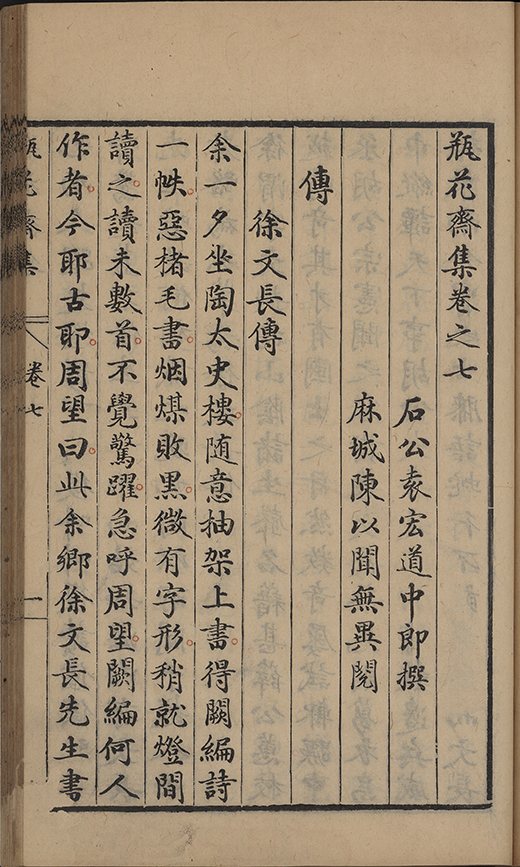 瓶花齋集卷之七
石公袁宏道中郎撰
麻城陳以聞無異閱
傳
徐文長傳
余一夕坐陶太史樓随意抽架上書得闕編詩
一帙惡楮毛書烟煤敗黑微有字形稍就燈間
讀之讀未數首不覺驚躍急呼周望闕編何人
作者今耶古耶周望曰此余鄉徐文長先生書
瓶花齋集
卷七
一